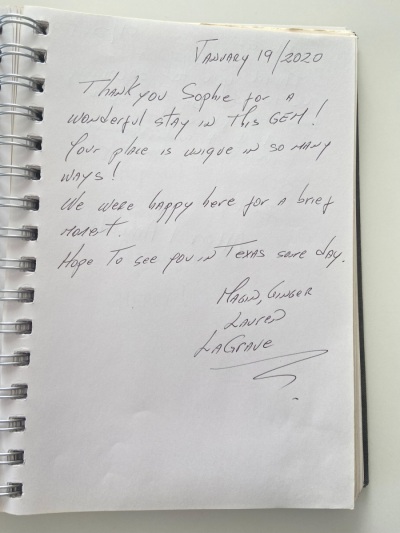 January 19/2020
Thank you Sophie for a
wonderful stay in this GEM!
Your place is unique in so many
ways!
We were happy here for a brief
moment.
Hope to see you in Texas some day.
Ginger
Lauren
LaGrave